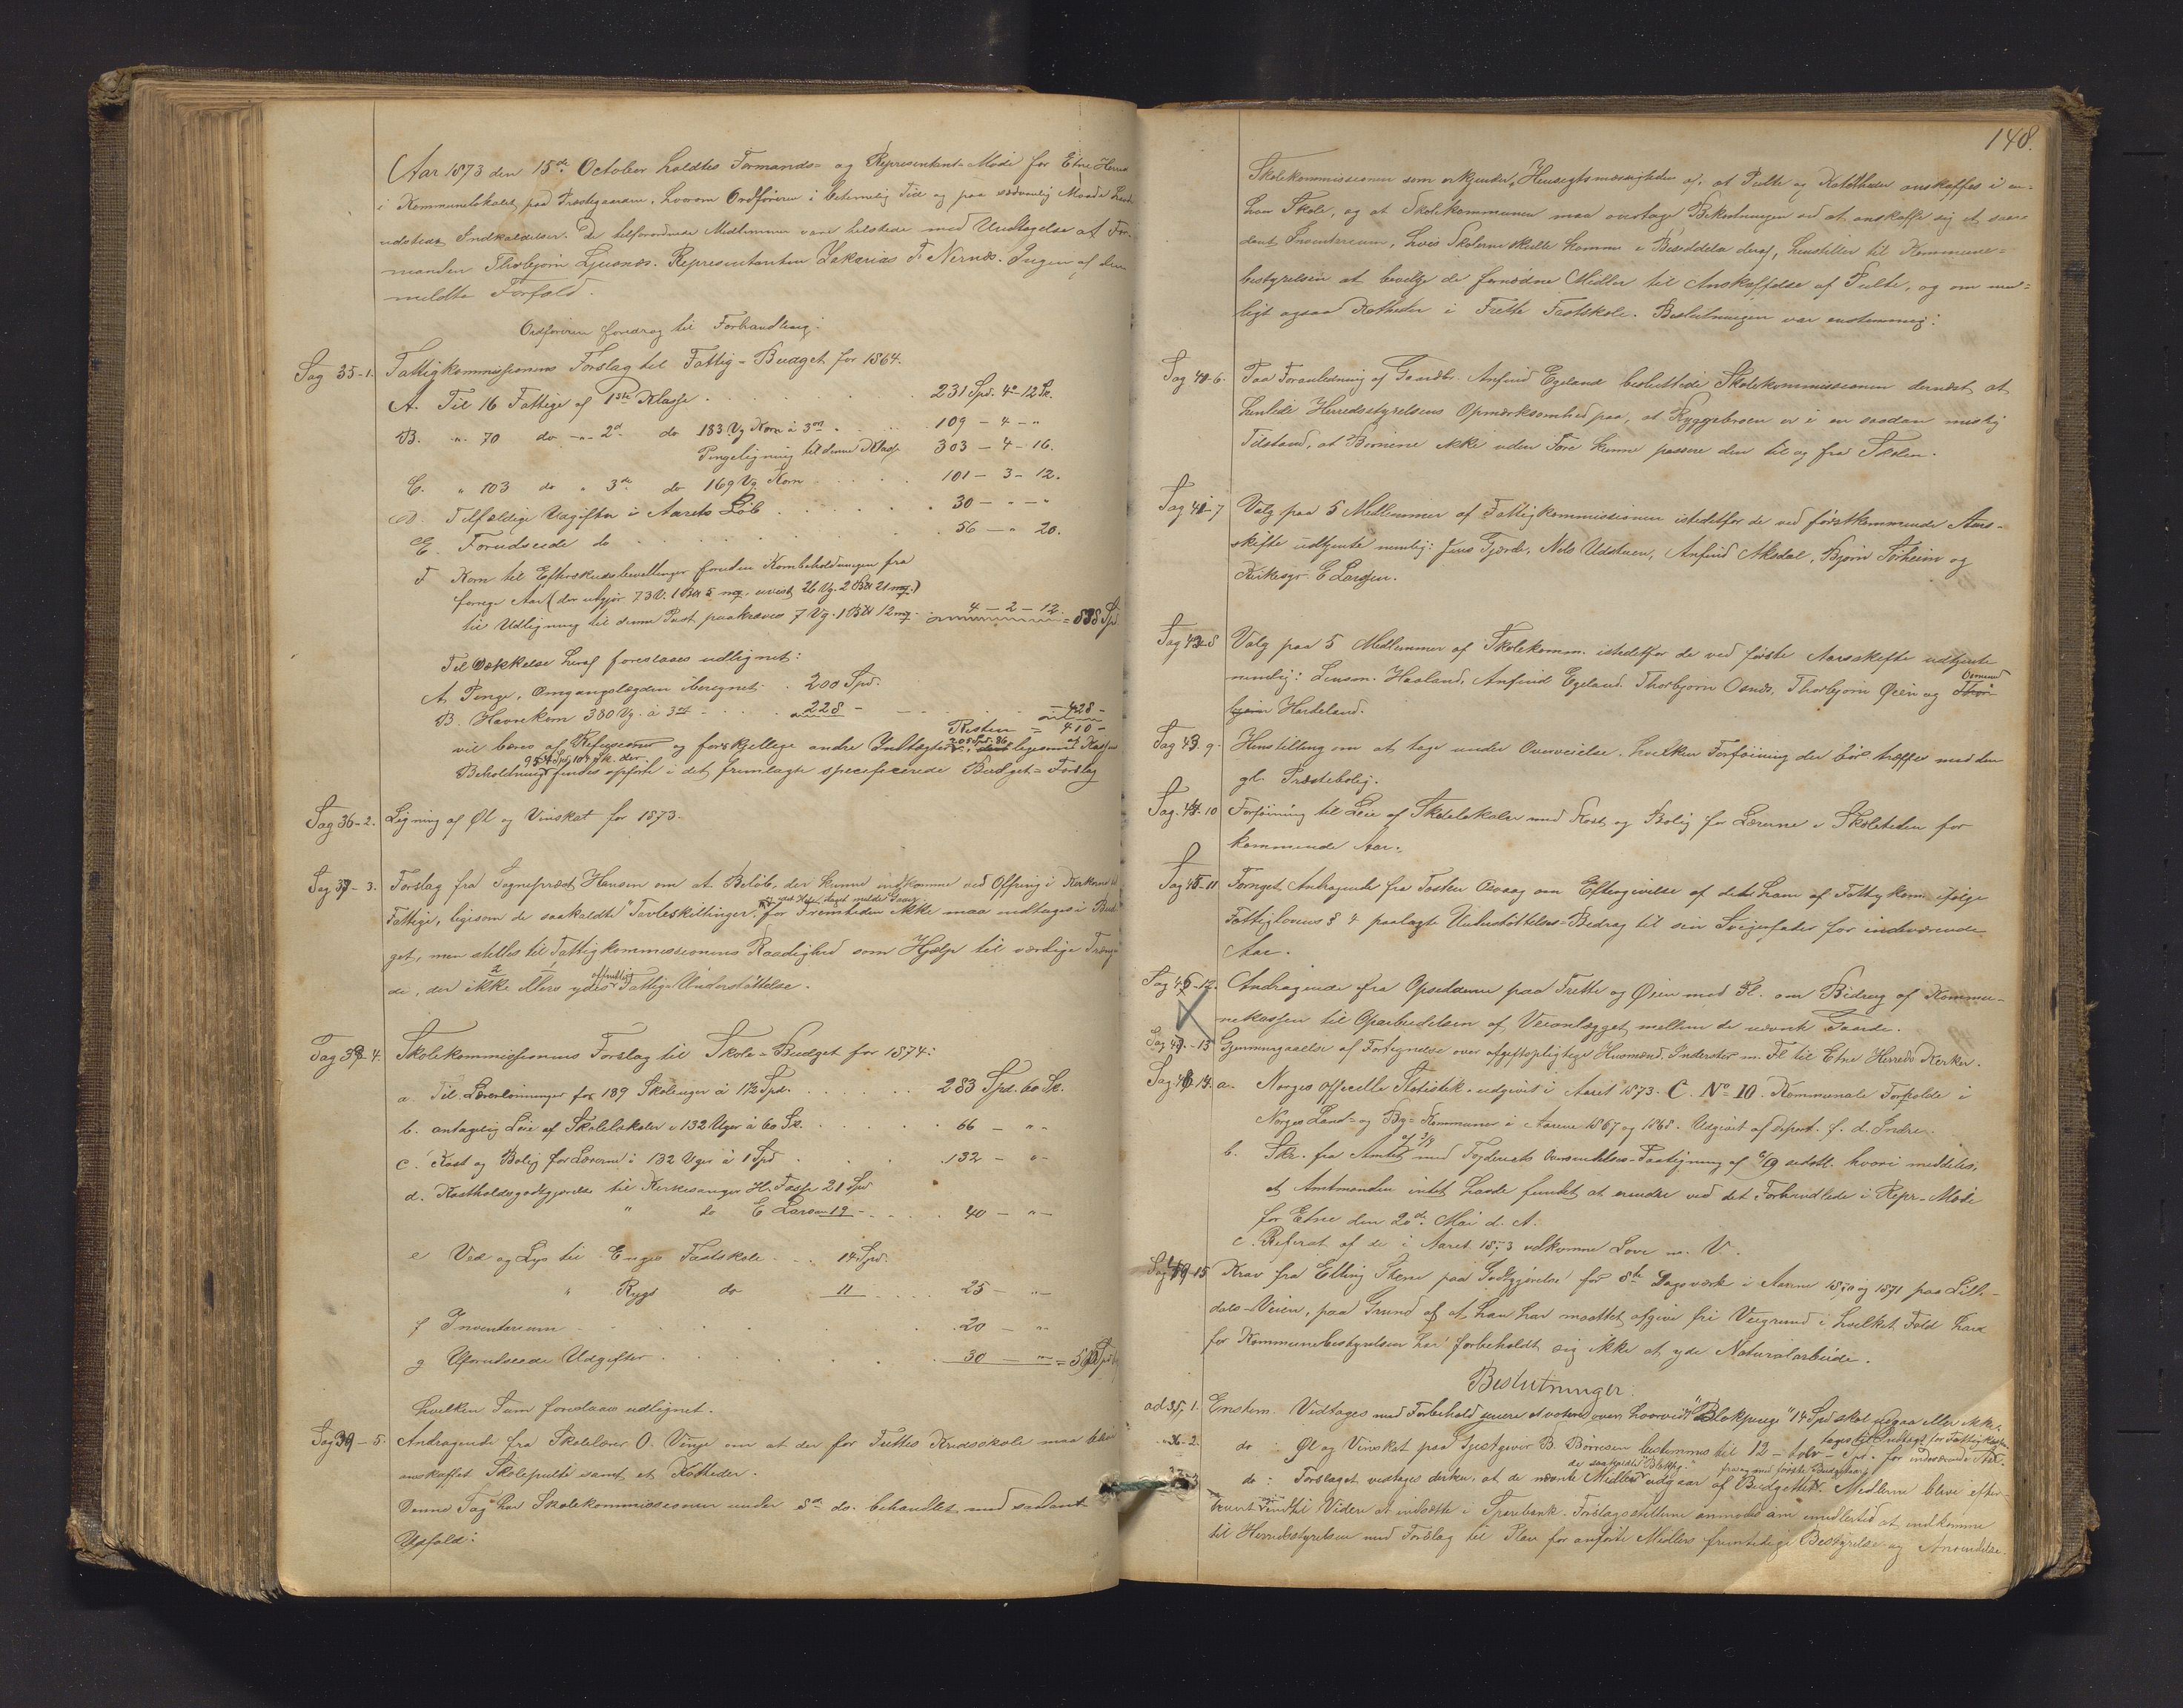 Aar 1873 den 15de October holdtes Formands- og Representant-Møde for Etne Herred
i Kommunelokalet paa Prestegaarden, hvorom Ordføreren i betimelig Tid og paa sædvanlig Maade havde
udstedt Indkaldelser. De tilforordnede Medlemmer vare tilstede med Undtagelse af For-
manden Thorbjørn Ljusnes. Representanten Zakarias F. Nernæs. Ingen af dem
meldte Forfald.
Ordføreren foredrog til Forhandling:
Sag 35-1. Fattigkommissionens Forslag til Fattig-Budget for 1864.
A. Til 16 Fattige af 1ste Klasse . . . 231 Spd. 4 - 12 Sk.
B. " 70 do -"- 2d do 183 Vg Korn à 3 ort . . . 109 - 4 - "
Pengeligning til denne Klasse 303 - 4 - 16.
C. " 103 do " 3de do 169 Vg Korn . . . 101 - 3 - 12.
D. Tilfældige Udgifter i Aarets Løb . . . 30 - " - "
E. Forudseede do . . . 56 - " 20.
F Korn til Efterskudsbevillinger foruden Kornbeholdningen fra
forrige Aar (der udgjør 73 V. 1 Bdt 5 mg. uvist 26 Vg. 2 Bdt 21 mg.)
til Udligning til denne Post paakræves 7 Vg. 1 Bdt 12 mg. 4 - 2 - 12. = 838 Spd
Til Dækkelse heraf foreslaaes udlignet:
A Penge, Omgangslægden iberegnet . 200 Spd.
B. Havrekorn 380 Vg. à 3 ort - . . . 228 - - 428 -
Resten = 410 -
vil bæres af Refusioner og forskjellige andre Indtægter 205 Spd. 86, ligesom af Kassens
Beholdning 95 Spd 104 Sk. der findes opførte i det fremlagte specificerede Budget-Forslag
Sag 36-2. Ligning af Øl og Vinskat for 1873.
Sag 37-3. Forslag fra Sognepræst Hansen om at Beløb, der kunne indkomme ved Ofring i Kirkerne til
Fattige, ligesom de saakaldte "Tavleskillinger" for Fremtiden ikke maa medtages i Bud-
get, men stilles til Fattigkommissionens Raadighed som Hjælp til værdige Træng-
de, der ikke ellers ydes offentlig Fattig-Understøttelse.
Sag 38-4. Skolekommissionens Forslag til Skole-Budget for 1874:
a. Til Lærerlønninger for 189 Skoleuger à 1½ Spd. . . . 283 Spd. 60 Sk.
b. antagelig Leie af Skolelokaler i 132 Uger à 60 Sk. . . . 66 - " -
c. Kost og Bolig for Lærerne i 132 Uger à 1 Spd . . . 132 - " -
d. Kostholdsgodtgjørelse til Kirkesanger H. Fasse 21 Spd
" do E Larsen 19 - . . . 40 - " -
e Ved og Lys til Enges Fastskole . . . 14 Spd.
" Rygs do 11 . . . 25 - " -
f Inventarium - . . . 20 - " -
g Uforudseede Udgifter . . . 30 - " -
hvilken Sum foreslaaes udlignet.
Sag 39-5. Andragende fra Skolelærer O. Vinge om at der for Frettes Kredsskole maa blive
anskaffet Skolepulte samt et Katheder.
Denne Sag har Skolekommissionen under 8de ds. behandlet med saadant
Udfald:
148.
Skolekommissionen som erkjender Hensigtsmæssigheden af, at Pulte og Katheder anskaffes i en-
hver Skole, og at Skolekommunen maa overtage Bekostningen ved at anskaffe sig et saa-
dant Inventarium, hvis Skolerne skulle komme i Besiddelse deraf, henstiller til Kommune-
bestyrelsen at bevilge de fornødne Midler til Anskaffelse af Pulte, og om mu-
ligt ogsaa Katheder i Frette Fastskole. Beslutningen var enstemmig.
Sag 40-6. Paa Foranledning af Gaardbr. Anfind Egeland besluttede Skolekommissionen dernæst at
henlede Herredsstyrelsens Opmærksomhed paa, at Ryggebroen er i en saadan mislig
Tilstand, at Børnene ikke uden Fare kunne passere den til og fra Skolen.
Sag 41-7 Valg paa 5 Medlemmer af Fattigkommissionen istedetfor de ved førstkommende Aars-
skifte udtjente nemlig: Jens Gjerde, Nels Udstuen, Anfind Aksdal, Bjørn Sørheim og
Kirkesgr. E Larssen.
Sag 42-8 Valg paa 5 Medlemmer af Skolekomm. istedetfor de ved første Aarsskifte udtjente
nemlig: Lensm. Haaland, Anfind Egeland, Thorbjørn Osnæs, Thorbjørn Øien og Osmund
Hardeland.
Sag 43-9. Henstilling om at tage under Overveielse, hvilken Forføining der bør træffes med den
gl. Præstebolig.
Sag 44-10 Forføining til Leie af Skolelokaler med Kost og Bolig for Lærerne i Skoletiden for
kommende Aar.
Sag 45-11 Fornyet Andragende fra Tosten Osvaag om Eftergivelse af det ham af Fattigkom. ifølge
Fattiglovens § 4 paalagte Understøttelses-Bidrag til sin Svigerfader for indeværende
Aar.
Sag 46-12. Andragende fra Opsidderne paa Frette og Øien med Fl. om Bidrag af Kommu-
nekassen til Oparbeidelsen af Veianlægget mellem de nævnte Gaarde.
Sag 47-13 Gjennemgaaelse af Fortegnelse over afgiftspligtige Husmænd, Inderster m. Fl til Etne Herreds Kirker.
Sag 48-14. a. Norges officielle Statistik, udgivet i Aaret 1873. C. No 10. Kommunale Forholde i
Norges Land- og By-Kommuner i Aarene 1867 og 1868. Udgivet af Depart. f. d. Indre.
b. Skr. fra Amtet af 3/9 med Fogderiets Oversendelses-Paategning af 6/9 sidstl. hvori meddeles,
at Amtmanden intet havde fundet at erindre ved det Forhandlede i Repr-Møde
for Etne den 20de Mai d. A.
c. Referat af de i Aaret 1873 udkomne Love m. V.
Sag 49-15 Krav fra Elling Stene paa Godtgjørelse for 8te Dagsværk i Aarene 1870 og 1871 paa Litle-
dals-Veien, paa Grund af at han har maattet afgive fri Veigrund i hvilket Fald han
for Kommunebestyrelsen har forbeholdt sig ikke at yde Naturalarbeide.
Beslutninger.
ad 35, 1. Enstem. Vedtages med Forbehold senere at votere over, hvorvidt "Blokpenge" 14 Spd skal udgaa eller ikke
tages til Indtægt for Fattigkassen.
" 36-2. do : Øl og Vinskat paa Gjestgiver B. Børresen bestemmes til 12 - tolv - Spd. for indeværende Aar.
do : Forslaget vedtages derhen, at de nævnte Midler de saakaldte Blokpg. udgaar af Budgettet fra og med første Budgetaar. Midlerne blive efter-
hvert indtil Videre at indsætte i Sparebank. Forslagsstilleren anmodes om imidlertid at indkomme
til Herredsstyrelsen med Forslag til Plan for anførte Midlers fremtidige Bestyrelse og Anvendelse.